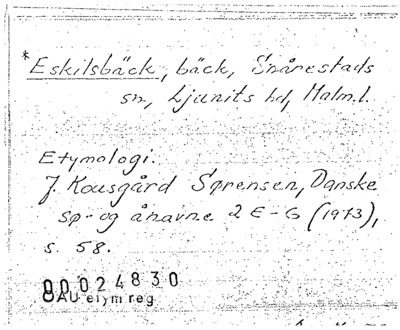 *Eskilsbäck, bäck, Snårestads
sn, Ljunits hd, Malm.l.
Etymologi.
J. Kousgård Sørensen, Danske
sø- og ånavne 2 E-G (1973),
s. 58.
00024830
OAU etym reg